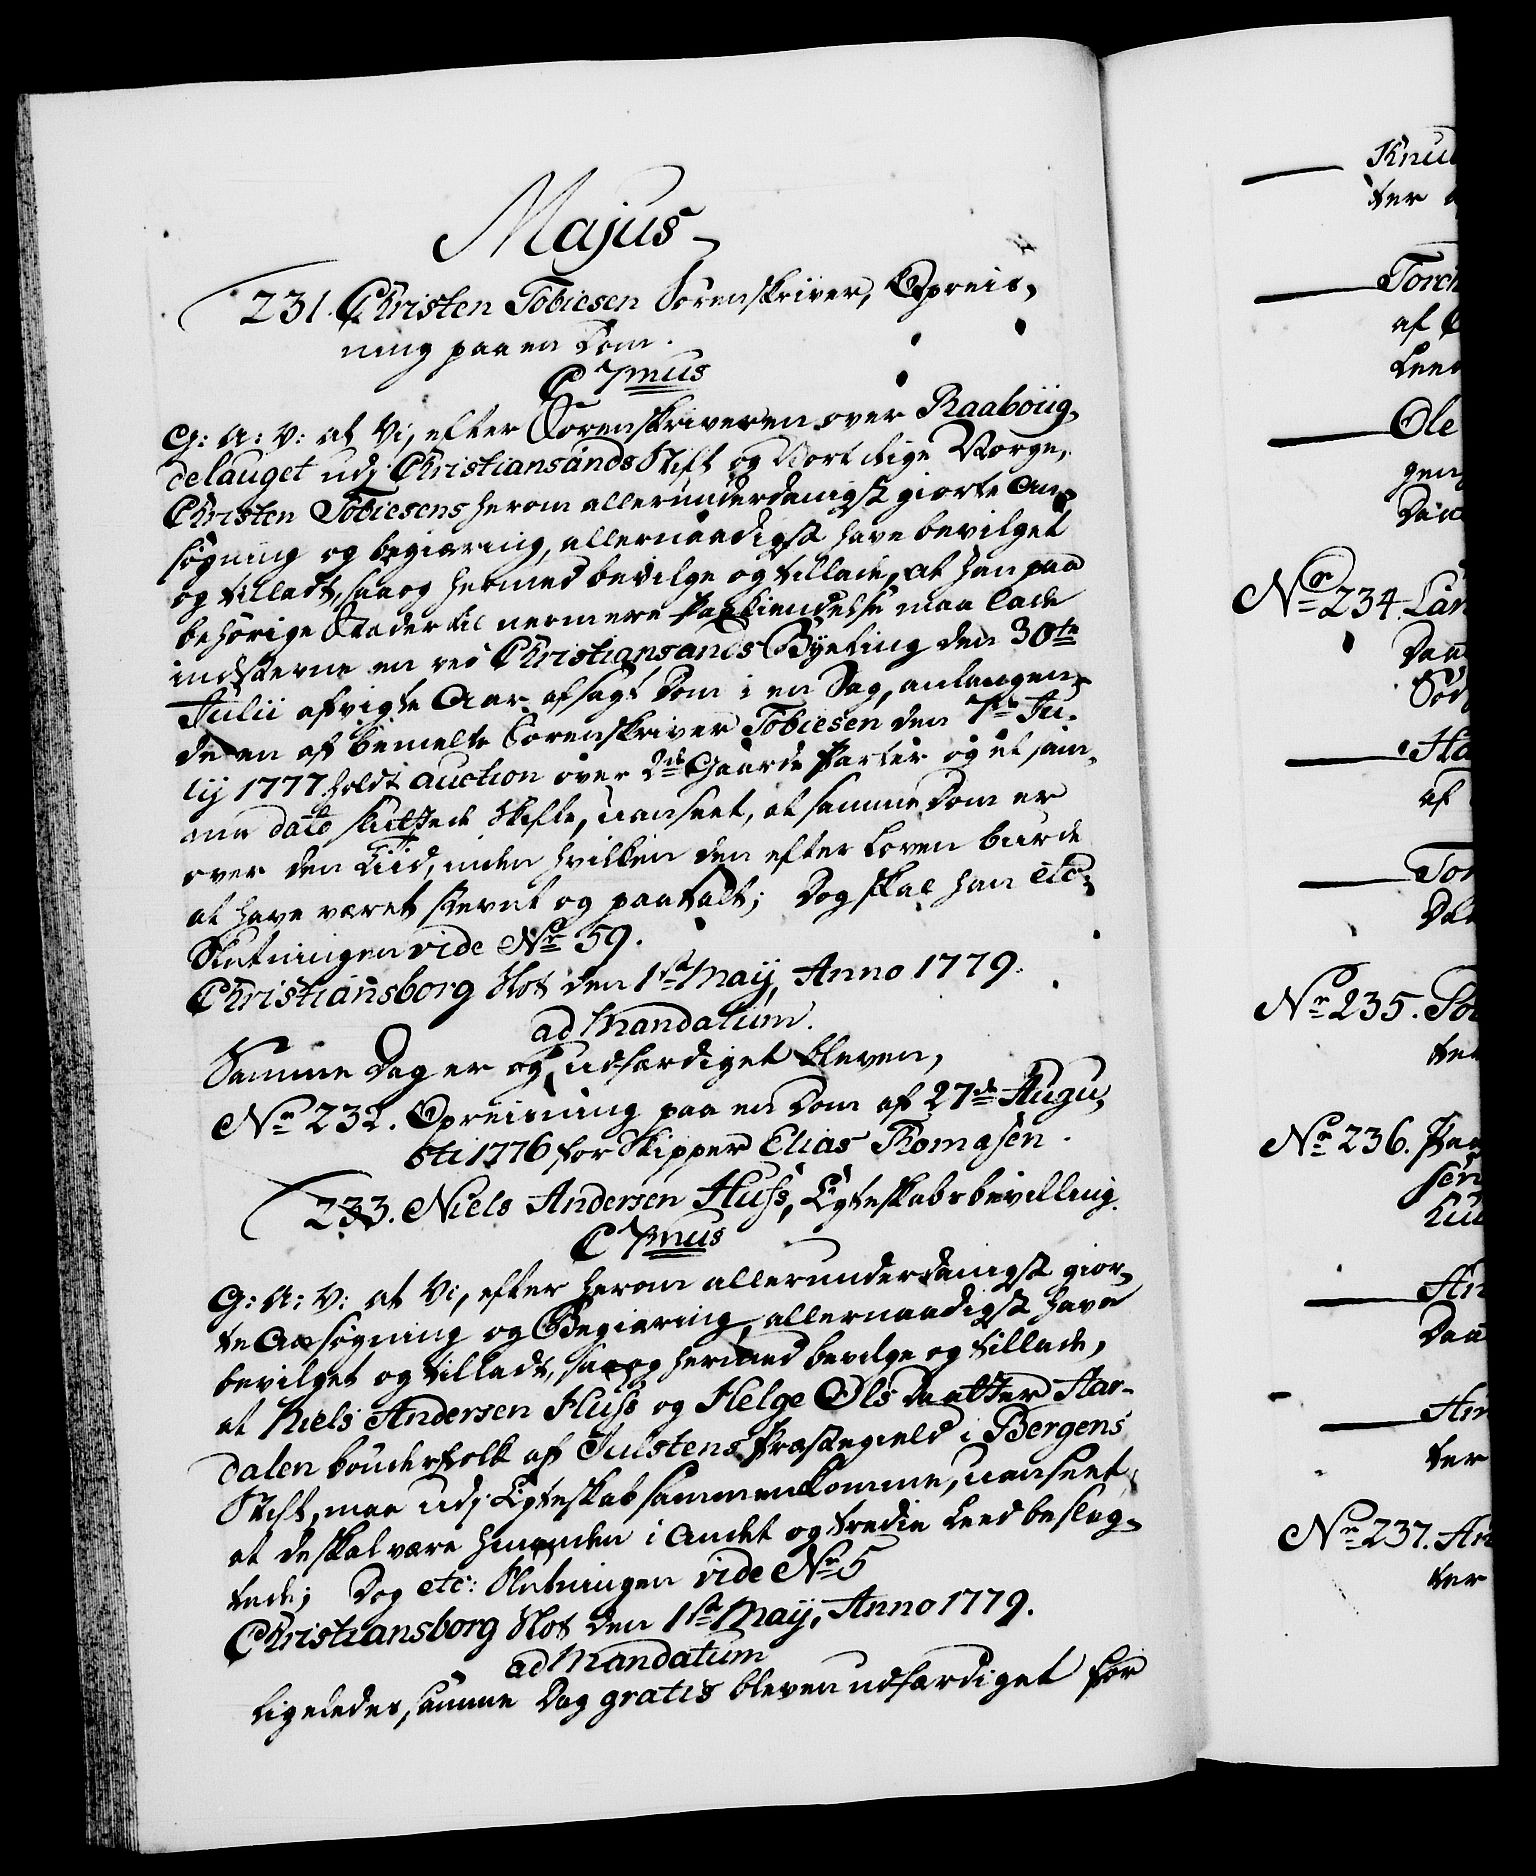 Majus
231. Christen Tobiesen Sorenskriver, Opreis,
ning paa en Dom.
C 7mus
G: A: V: at Vi, efter Sorenskriveren over Raaboiig,
delauget udj Christiansands Stift og Vort Rige Norge,
Christen Tobiesens herom allerunderdanigst giorte An,
søgning og begiæring, allernaadigst have bevilget
og tilladt, saa og hermed bevilge og tillade, at han paa
behörige Stæder til nermere Paakiendelse maa lade
indstevne en ved Christiansands Byeting den 30te
Julii afvigte Aar afsagt Dom i en Sag, anlangen,
de en af bemelte Sorenskriver Tobiesen den 7de Ju,
lij 1777 holdt auction over 2de Gaarde Parter og et sam,
me dato sluttede Skifte, uanseet, at samme Dom er
over den Tiid, inden hvilken den efter Loven burde
at have været stevnt og paatalt; Dog skal han etc:
Slutningen vide No 59.
Christiansborg Slot den 1ste Maij, Anno 1779.
ad Mandatum.
Samme Dag er og udfærdiget bleven,
No 232. Opreisning paa en Dom af 27de Augu,
sti 1776 for Skipper Elias Thomasen.
233. Niels Andersen Huss, Egteskabs bevilling.
C 7mus
G: A: V: at Vi, efter herom allerunderdanigst gior,
te Ansøgning og Begiæring, allernaadigst have
bevilget og tilladt, saa og hermed bevilge og tillade,
at Niels Andersen Huss og Helge Ols Daatter Aar-
dalen bönderfolk af Julstens Præstegield i Bergens
Stift, maa udj Egteskab sammenkomme, uanseet,
at de skal være hinanden i Andet og tredie Leed beslæg,
tede; Dog etc: Slutningen vide No 5
Christiansborg Slot den 1ste Maij, Anno 1779.
ad Mandatum
Ligeledes, samme Dag gratis bleven udfærdiget for
Knu
ter
Torc
af
Leen
Ole
gen
Daa
No 234. Lar
Daa
Sod
Ha
af
Tor
Da
No 235.
No 236.
sen
An
Daa
An
ter
No 237. An
ter